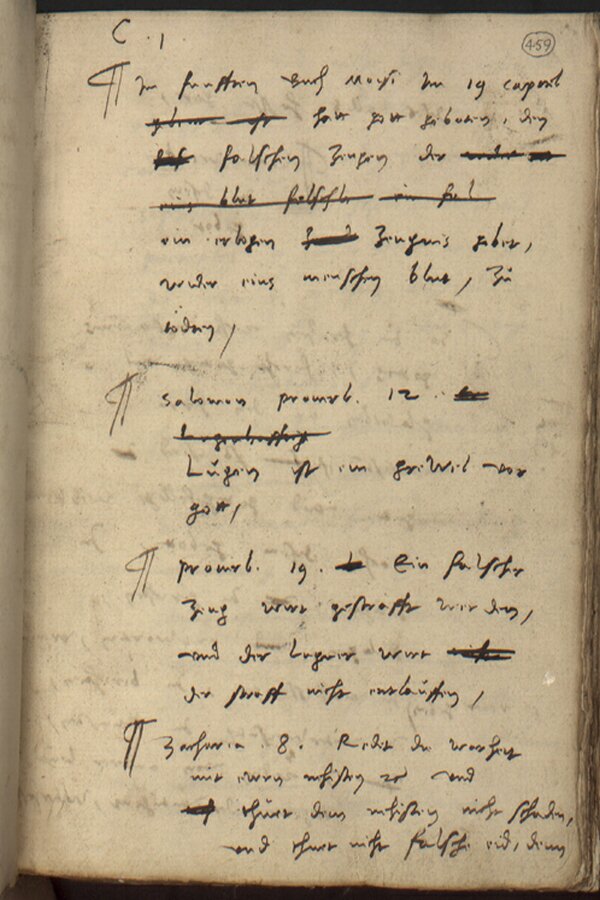 C . 1
459
Im funfften buch Mosi Im 19 capitel
hatt gott geboten, den
falschen Zeugen der
ein erlogen Zeugnis gibet,
wider eins menschen blut, Zu
toden,
Salomon proverb. 12.
Lügen ist ein grewel vor
gott,
proverb. 19. Ein falscher
Zeug wirt gestrafft werden,
und der lugner wirt
der straff nicht entlauffen,
Zacharia .8. Redet die warheit
mit ewrn nehisten und
thuet dem nehisten nicht schaden,
und thuet nicht falsche eid, denn